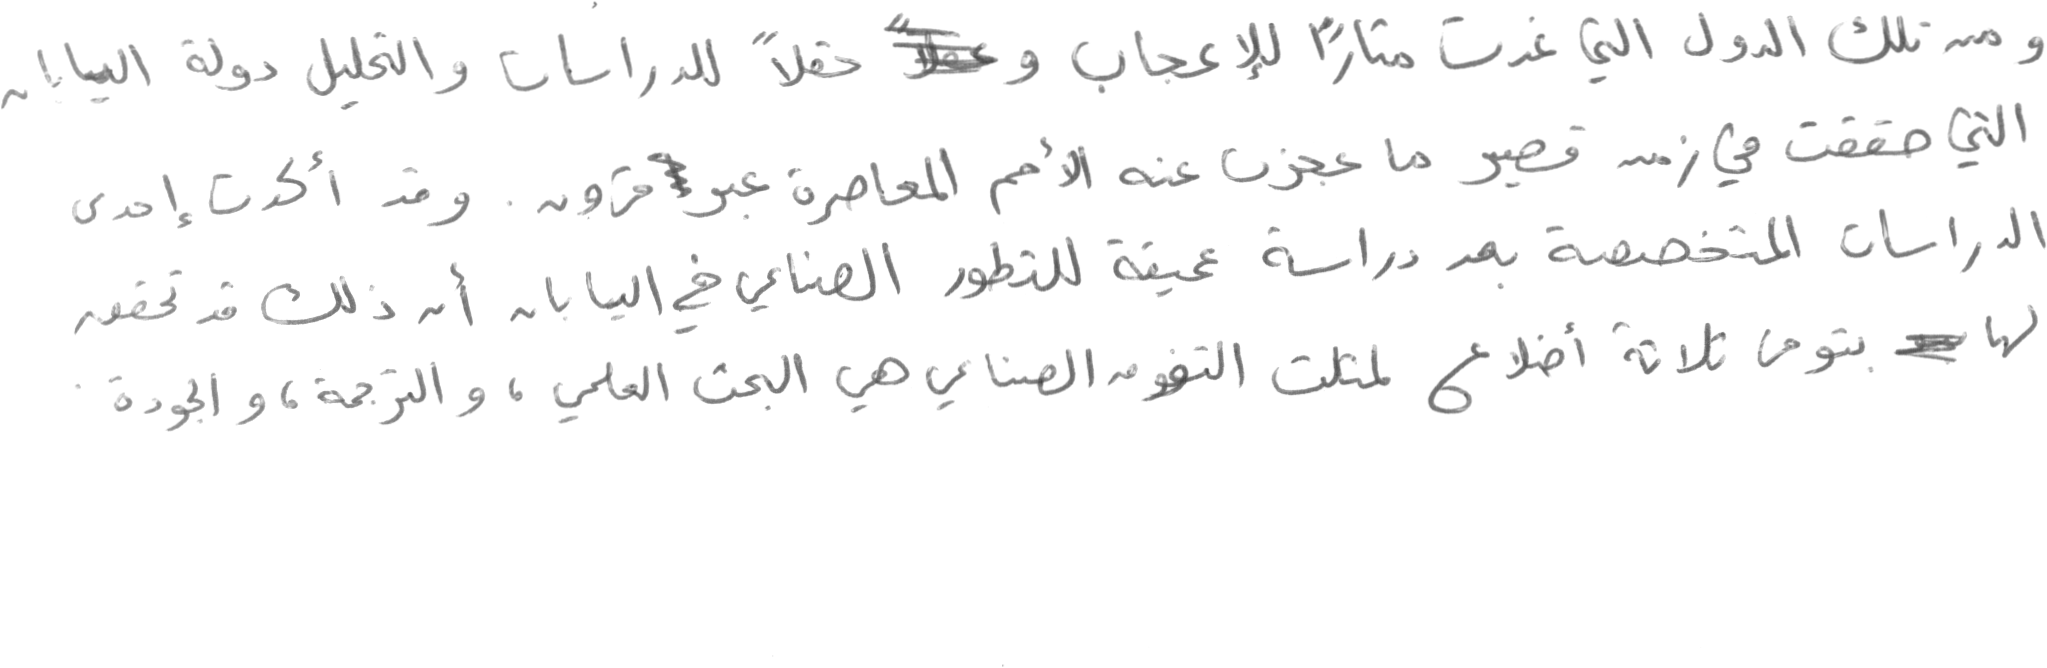 ومن تلك الدول التي غدت مثارًا للإعجاب و حقلاً للدراسات والتحليل دولة اليابان
التي حققت في زمن قصير ما عجزت عنه الأمم المعاصرة عبر قرون. وقد أكدت إحدى
الدراسات المتخصصة بعد دراسة عميقة للتطور الصناعي في اليابان أن ذلك قد تحقق
لها بتوفر ثلاثة أضلاع لمثلث التفوق الصناعي هي البحث العلمي، والترجمة، والجودة.